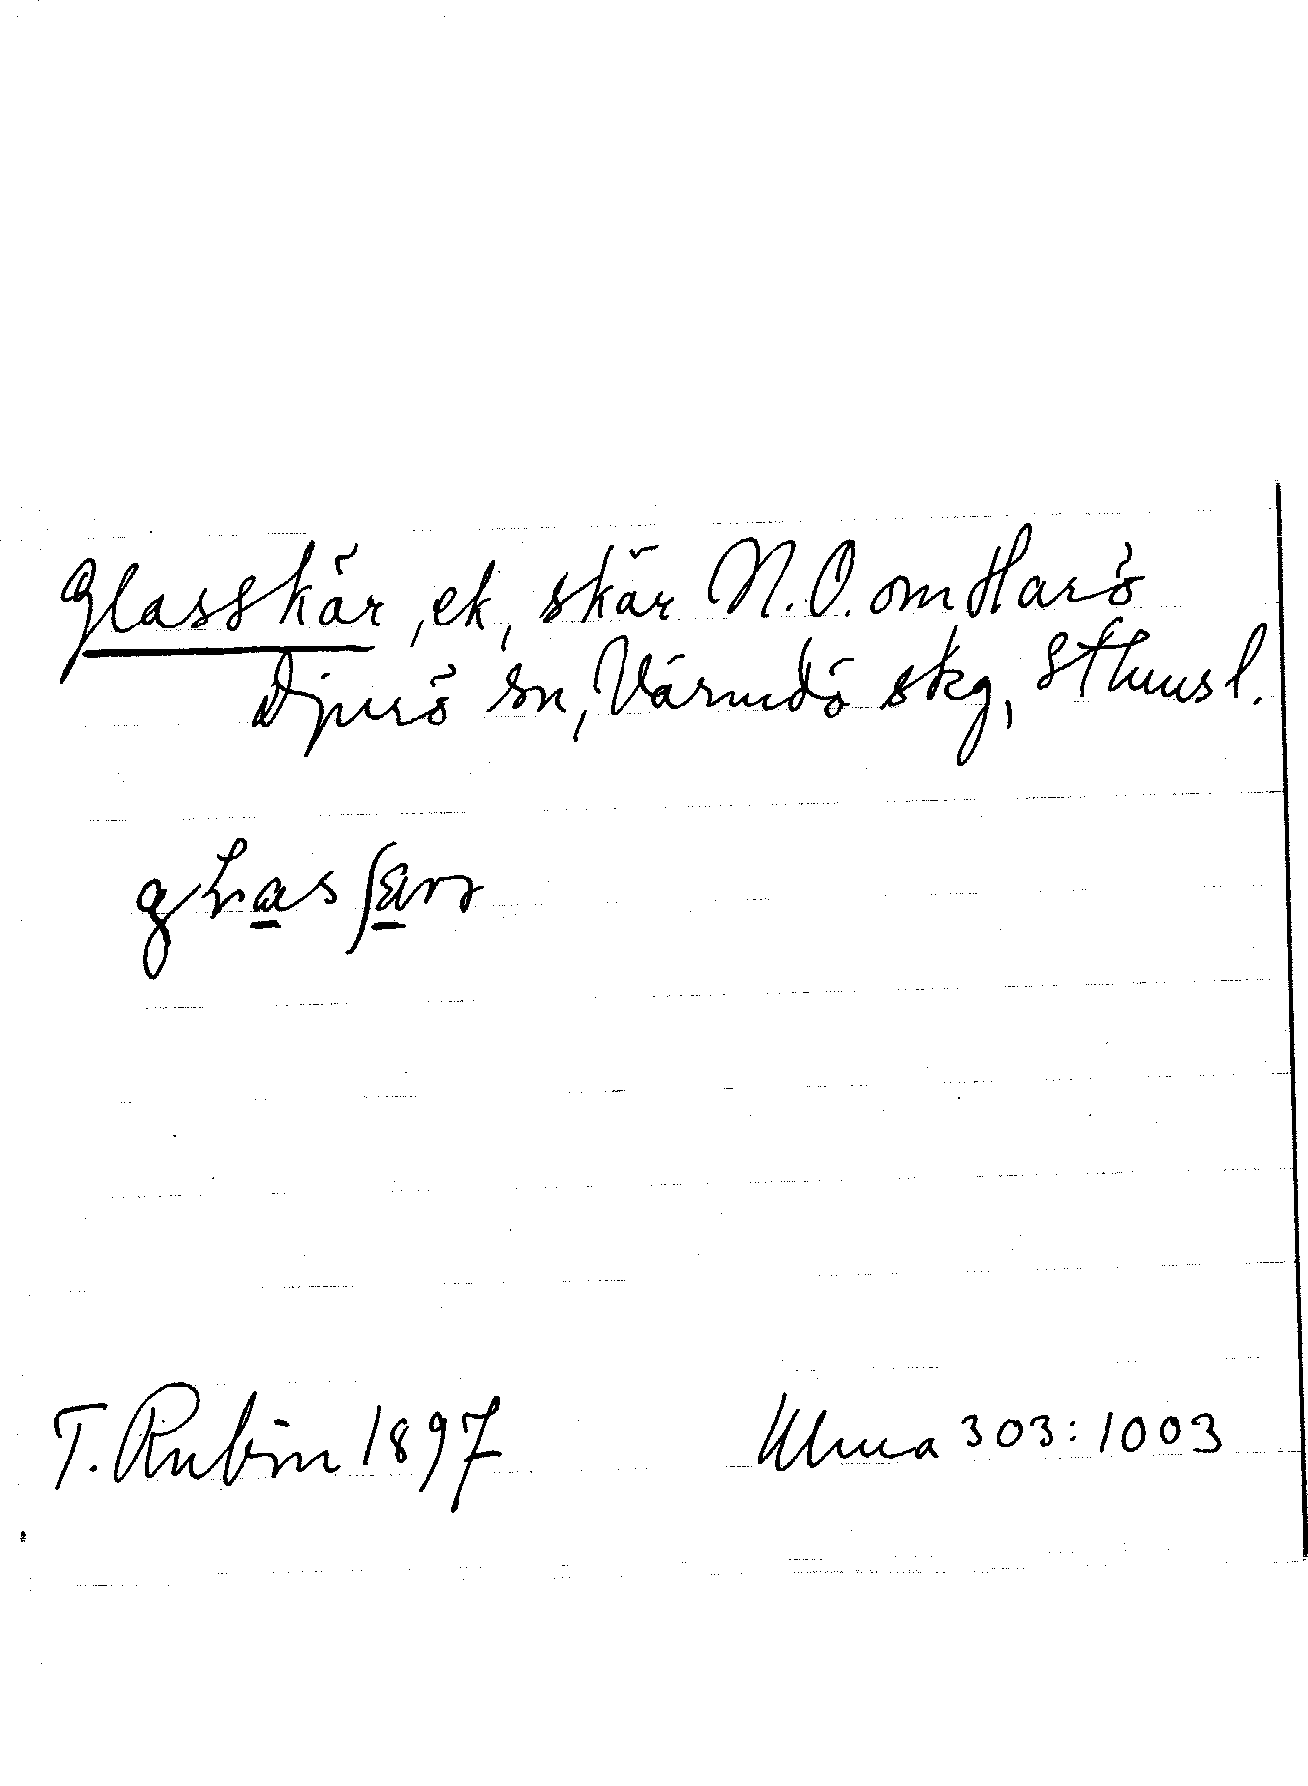 Glasskär, ek, skär N.O. om Harö
Djurö sn, Värmdö skg, Sthmsl.
T. Rubin 1897 Ulma 303:1003